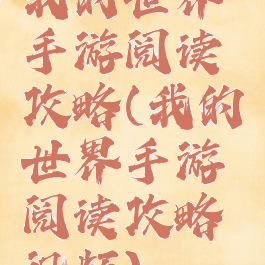 我的世界
手游阅读
攻略(我的
世界手游
阅读攻略
视频)